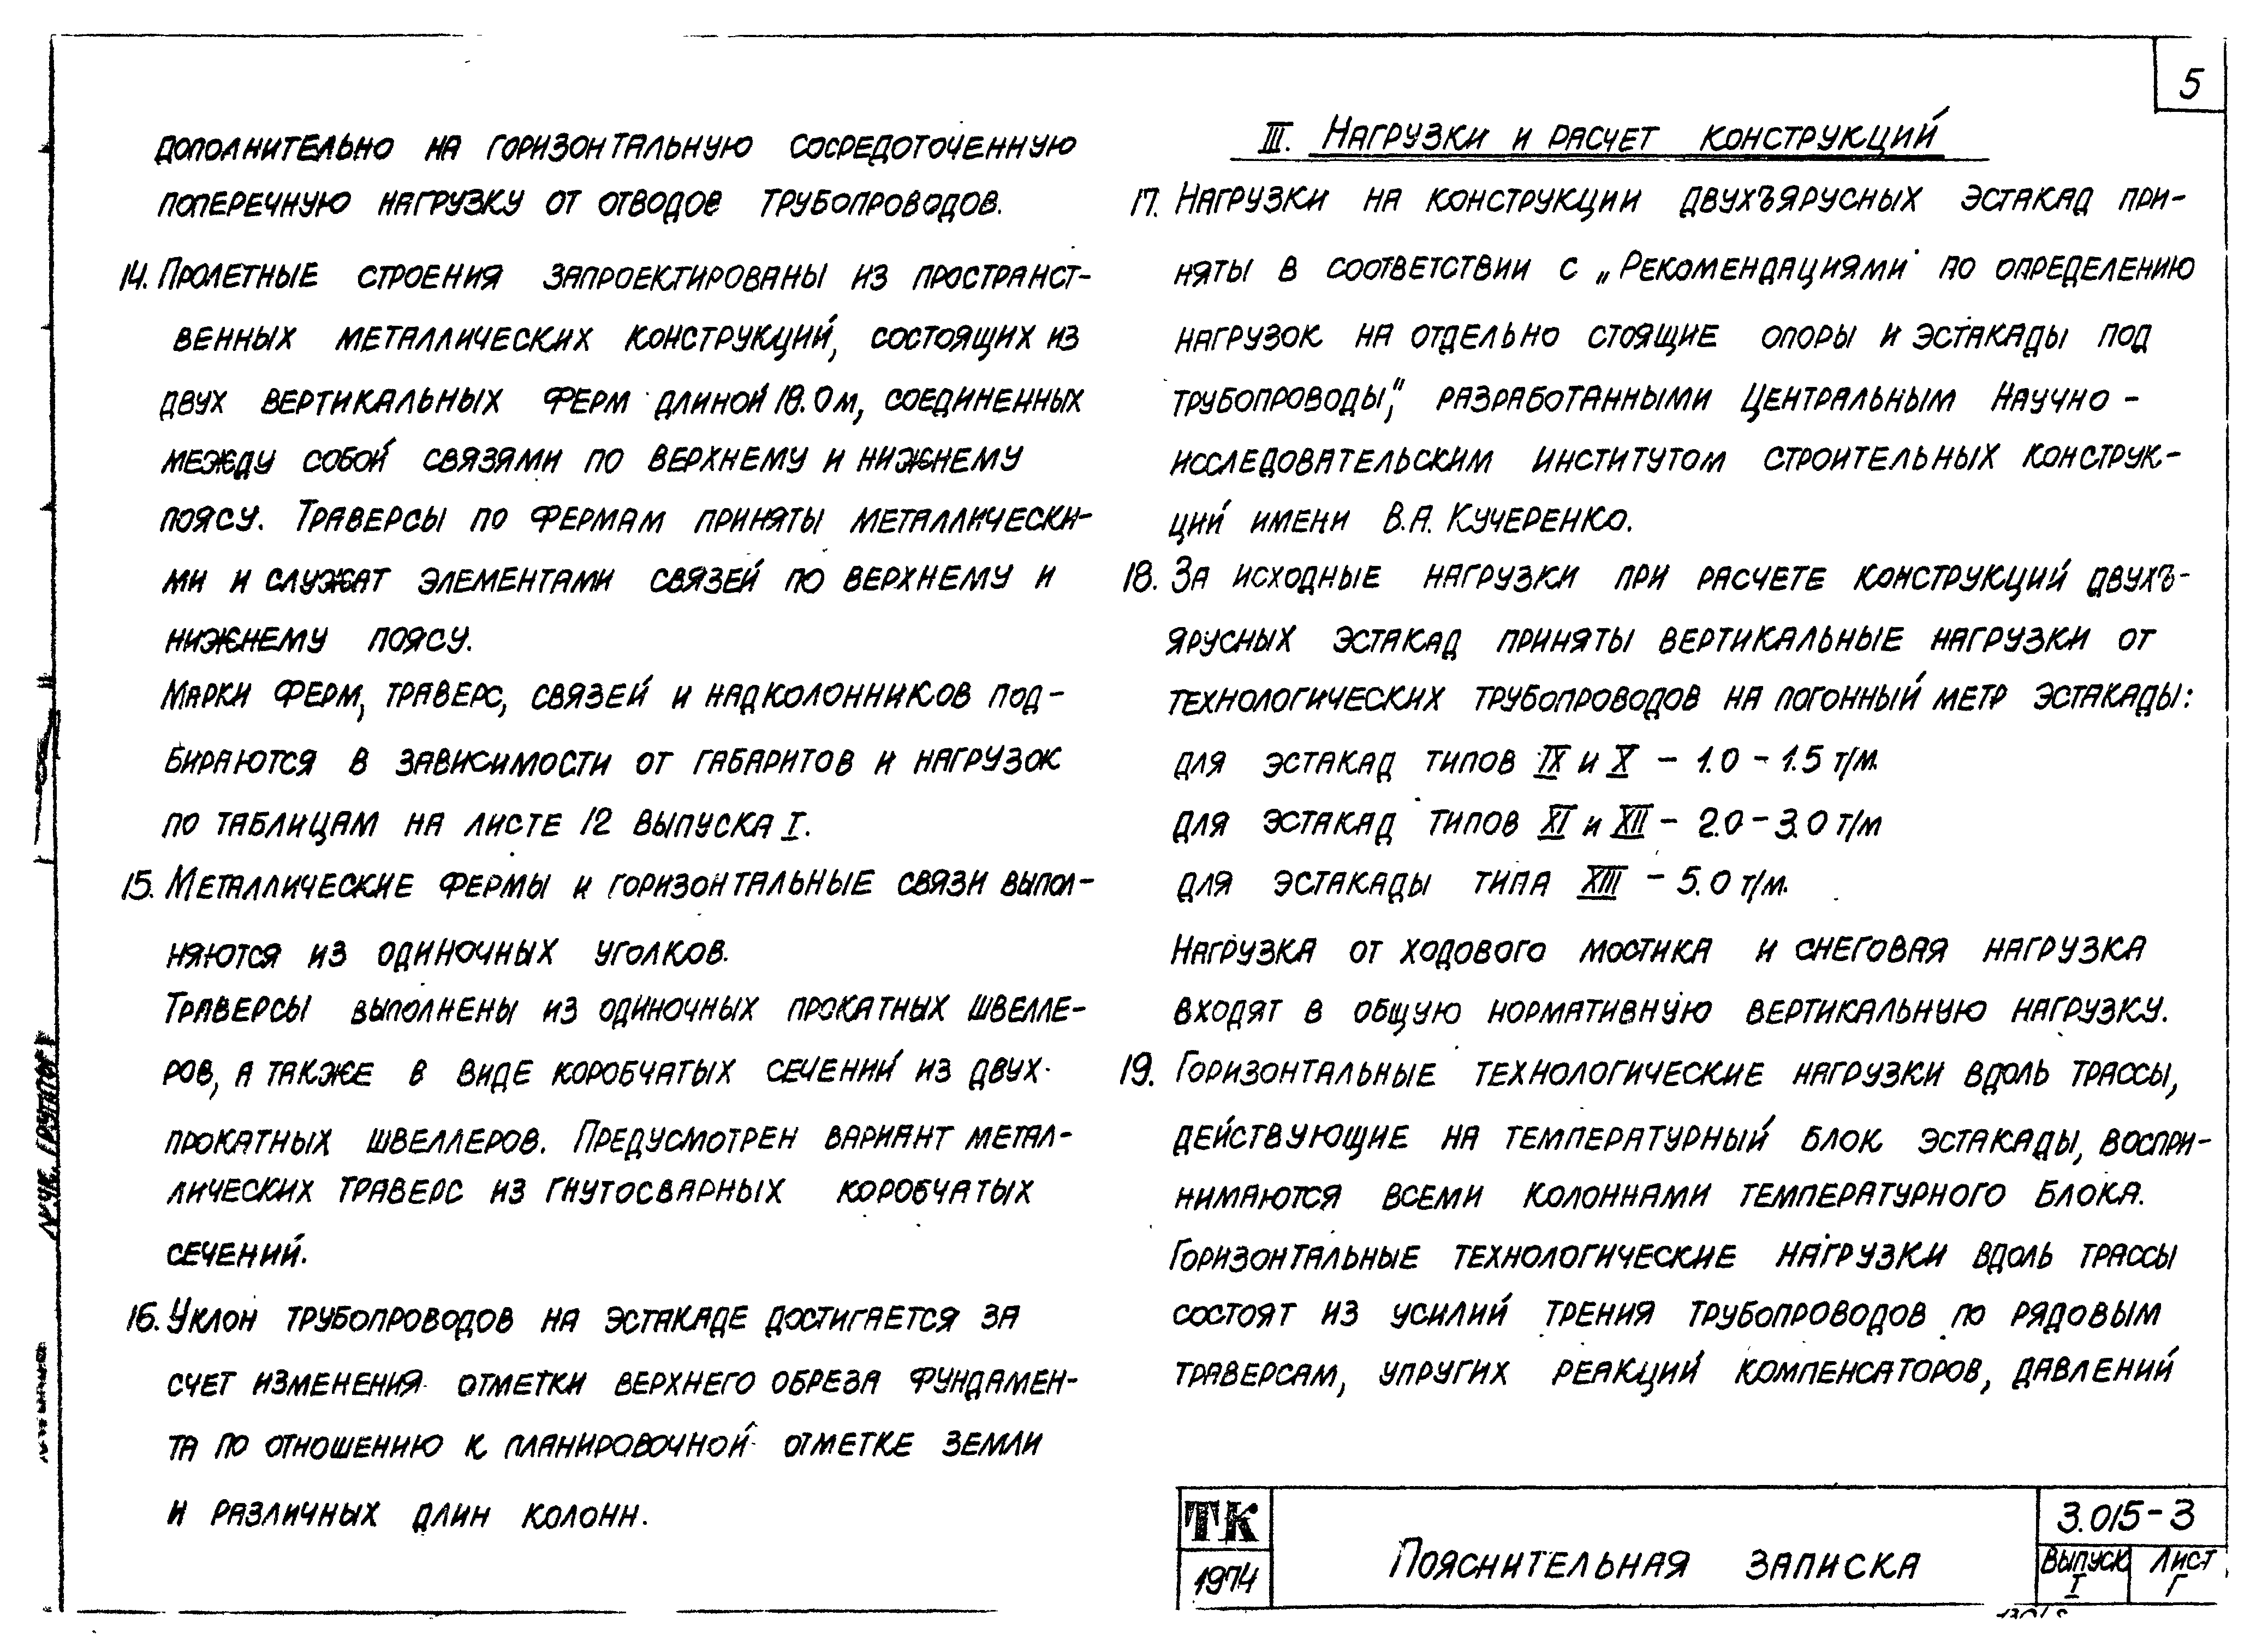 5
дополнительно на горизонтальную сосредоточенную
поперечную нагрузку от отводов трубопроводов.
14. Пролетные строения запроектированы из пространст-
венных металлических конструкций, состоящих из
двух вертикальных ферм длиной 18.0 м, соединенных
между собой связями по верхнему и нижнему
поясу. Траверсы по фермам приняты металлически-
ми и служат элементами связей по верхнему и
нижнему поясу.
Марки ферм, траверс, связей и надколонников под-
бираются в зависимости от габаритов и нагрузок
по таблицам на листе 12 выпуска I.
15. Металлические фермы и горизонтальные связи выпол-
няются из одиночных уголков.
Траверсы выполнены из одиночных прокатных швелле-
ров, а также в виде коробчатых сечений из двух
прокатных швеллеров. Предусмотрен вариант метал-
лических траверс из гнутосварных коробчатых
сечений.
16. Уклон трубопроводов на эстакаде достигается за
счет изменения отметки верхнего обреза фундамен-
та по отношению к планировочной отметке земли
и различных длин колонн.
III. Нагрузки и расчет конструкций
17. Нагрузки на конструкции двухъярусных эстакад при-
няты в соответствии с „Рекомендациями по определению
нагрузок на отдельно стоящие опоры и эстакады под
трубопроводы", разработанными Центральным Научно-
исследовательским институтом строительных конструк-
ций имени В.А. Кучеренко.
18. За исходные нагрузки при расчете конструкций двухъ-
ярусных эстакад приняты вертикальные нагрузки от
технологических трубопроводов на погонный метр эстакады:
для эстакад типов IX и X - 1.0 - 1.5 т/м.
для эстакад типов XI и XII - 2.0 - 3.0 т/м
для эстакады типа XIII - 5.0 т/м.
Нагрузка от ходового мостика и снеговая нагрузка
входят в общую нормативную вертикальную нагрузку.
19. Горизонтальные технологические нагрузки вдоль трассы,
действующие на температурный блок эстакады, воспри-
нимаются всеми колоннами температурного блока.
Горизонтальные технологические нагрузки вдоль трассы
состоят из усилий трения трубопроводов по рядовым
траверсам, упругих реакций компенсаторов, давлений
ТК
1974
Пояснительная записка
3.015-3
Выпуск I
Лист Г